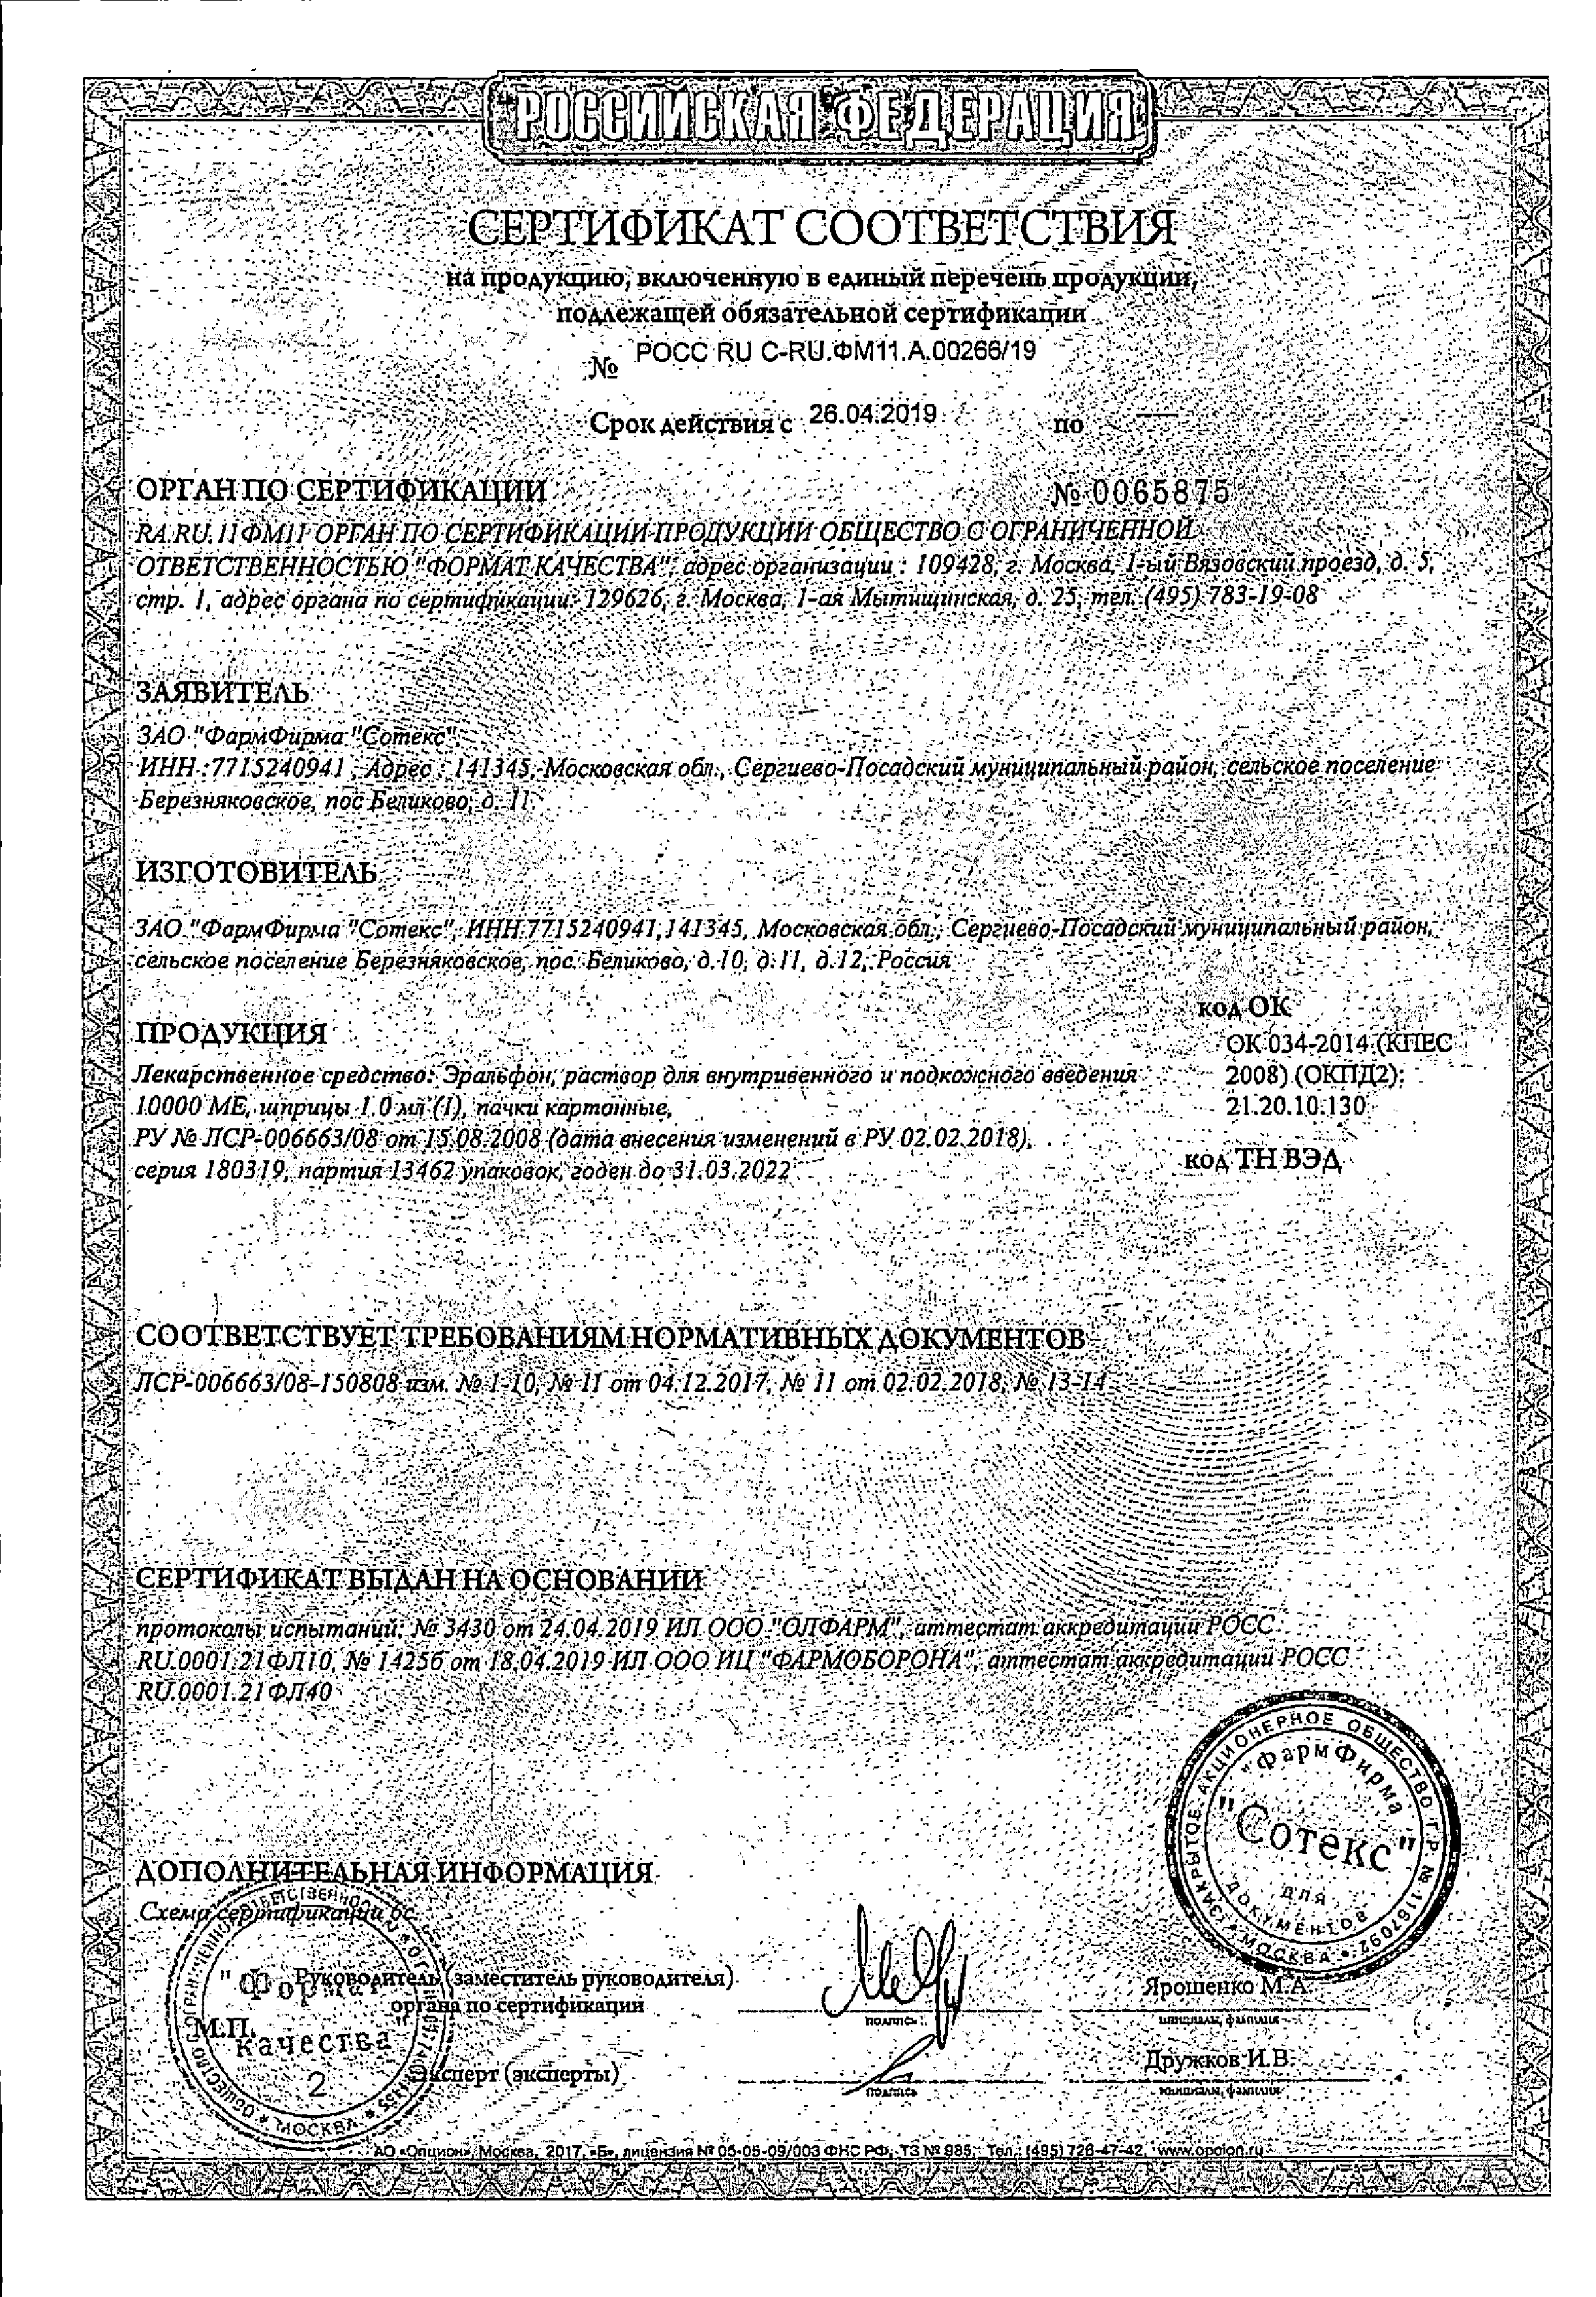 РОССИЙСКАЯ ФЕДЕРАЦИЯ
СЕРТИФИКАТ СООТВЕТСТВИЯ
на продукцию, включенную в единый перечень продукции,
подлежащей обязательной сертификации
№ РОСС RU C-RU.ФМ11.А.00266/19
Срок действия с 26.04.2019 по —
ОРГАН ПО СЕРТИФИКАЦИИ № 0065875
RA.RU.11ФМ11 ОРГАН ПО СЕРТИФИКАЦИИ ПРОДУКЦИИ ОБЩЕСТВО С ОГРАНИЧЕННОЙ
ОТВЕТСТВЕННОСТЬЮ "ФОРМАТ КАЧЕСТВА", адрес организации : 109428, г. Москва, 1-ый Вязовский проезд, д. 5,
стр. 1, адрес органа по сертификации: 129626, г. Москва, 1-ая Мытищинская, д. 25, тел. (495) 783-19-08
ЗАЯВИТЕЛЬ
ЗАО "ФармФирма "Сотекс"
ИНН :7715240941 , Адрес : 141345, Московская обл., Сергиево-Посадский муниципальный район, сельское поселение
Березняковское, пос Беликово, д. 11,
ИЗГОТОВИТЕЛЬ
ЗАО "ФармФирма "Сотекс", ИНН:7715240941,141345, Московская обл., Сергиево-Посадский муниципальный район,
сельское поселение Березняковское, пос. Беликово, д.10, д.11, д.12, Россия
код ОК
ПРОДУКЦИЯ
ОК 034-2014 (КПЕС
Лекарственное средство: Эральфон, раствор для внутривенного и подкожного введения
2008) (ОКПД2):
10000 МЕ, шприцы 1.0 мл (1), пачки картонные,
21.20.10.130
РУ № ЛСР-006663/08 от 15.08.2008 (дата внесения изменений в РУ 02.02.2018),
серия 180319, партия 13462 упаковок, годен до 31.03.2022
код ТН ВЭД
СООТВЕТСТВУЕТ ТРЕБОВАНИЯМ НОРМАТИВНЫХ ДОКУМЕНТОВ
ЛСР-006663/08-150808 изм. № 1-10, № 11 от 04.12.2017, № 11 от 02.02.2018, № 13-14
СЕРТИФИКАТ ВЫДАН НА ОСНОВАНИИ
протоколы испытаний: № 3430 от 24.04.2019 ИЛ ООО "ОЛФАРМ", аттестат аккредитации РОСС
RU.0001.21ФЛ10, № 14256 от 18.04.2019 ИЛ ООО ИЦ "ФАРМОБОРОНА", аттестат аккредитации РОСС
RU.0001.21ФЛ40
ЗАКРЫТОЕ АКЦИОНЕРНОЕ ОБЩЕСТВО Г.Р. № 1167092 * МОСКВА *
"ФармФирма
"Сотекс"
ДЛЯ
ДОКУМЕНТОВ
ДОПОЛНИТЕЛЬНАЯ ИНФОРМАЦИЯ
Схема сертификации 6с
"Формат
качества"
2
МОСКВА
М.П.
Руководитель (заместитель руководителя)
органа по сертификации
подпись
Ярошенко М.А.
инициалы, фамилия
Эксперт (эксперты)
подпись
Дружков И.В.
инициалы, фамилия
АО «Опцион», Москва, 2017, «Б», лицензия № 05-05-09/003 ФНС РФ, ТЗ № 985, Тел.: (495) 726-47-42, www.opcion.ru